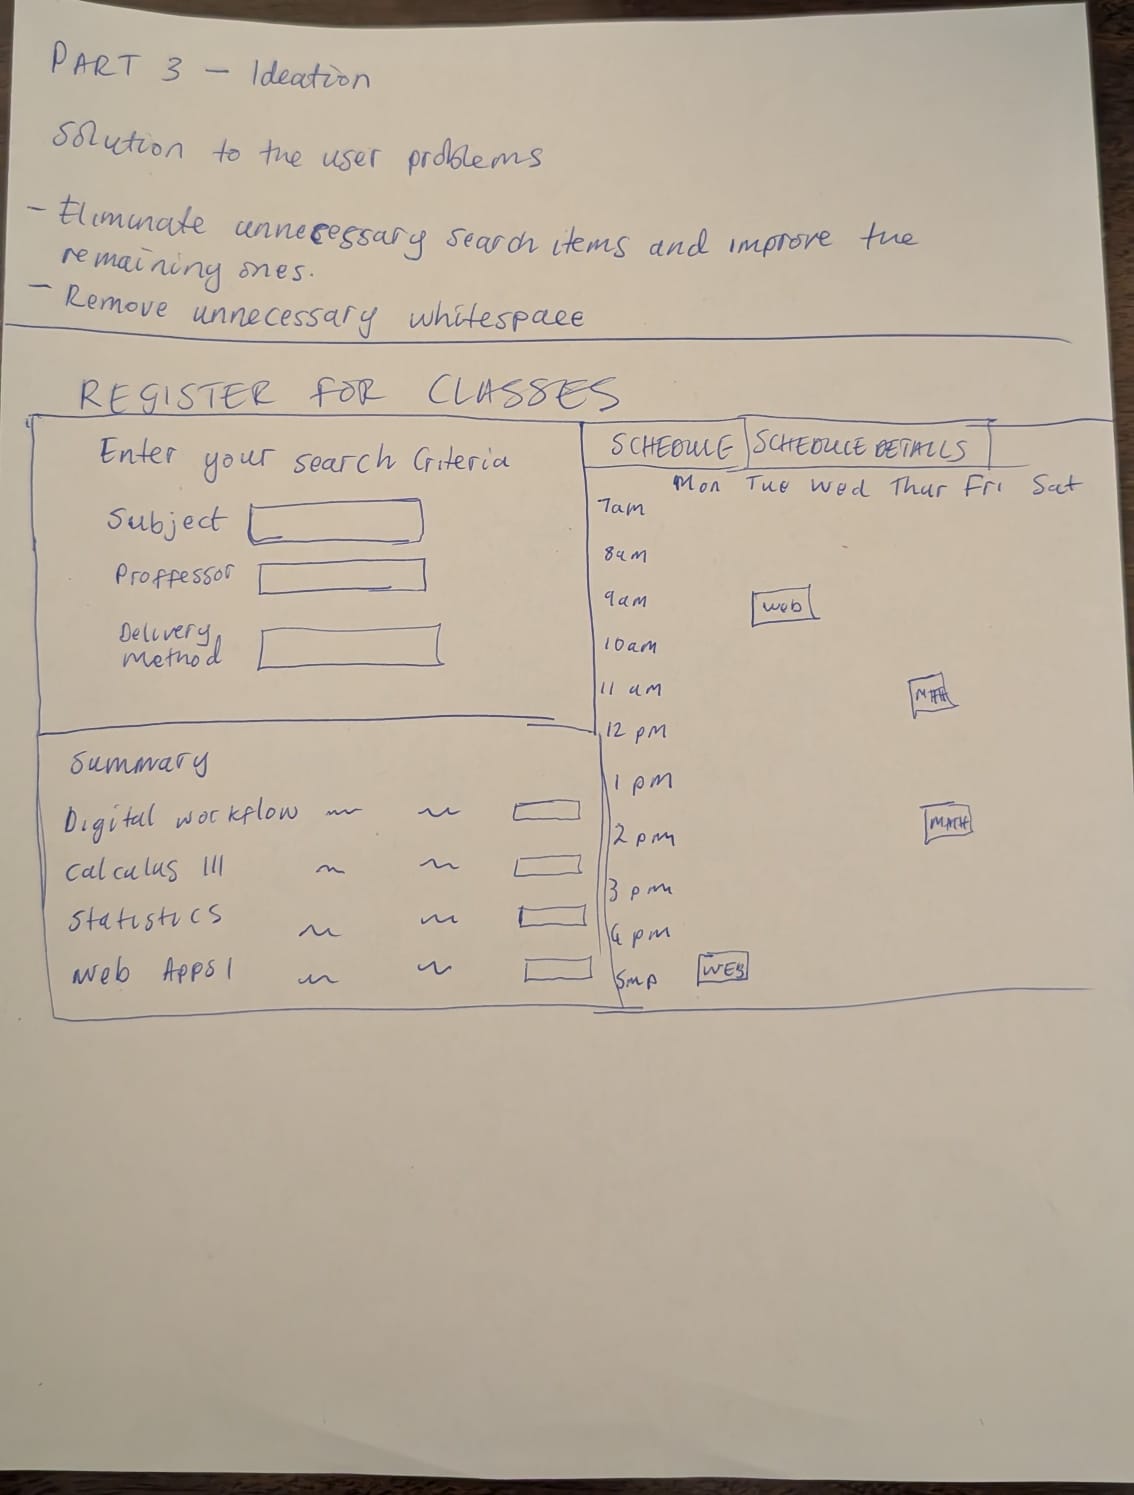 PART 3 - Ideation
Solution to the user problems
- Eliminate unnecessary search items and improve the
remaining ones.
- Remove unnecessary whitespace
REGISTER FOR CLASSES
Enter your search Criteria
Subject
Proffessor
Delivery
Method
Summary
Digital workflow
Calculus III
Statistics
Web Apps I
SCHEDULE
SCHEDULE DETAILS
Mon Tue Wed Thur Fri Sat
7am
8am
9am
web
10am
11 am
12 pm
1 pm
2 pm
MATH
3 pm
4 pm
5mp
WEB